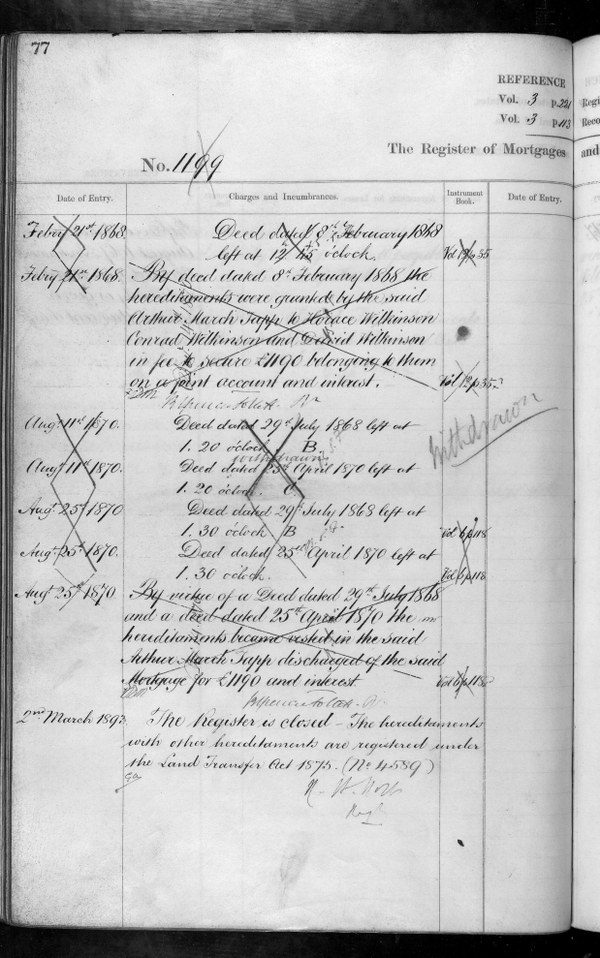 77
REFERENCE
Vol. 3 p. 221
Vol. 3 p. 113
The Register of Mortgages
and
No. 1199
Date of Entry.
Charges and Incumbrances.
Instrument Book.
Date of Entry.
Feby 21st 1868.
Deed dated 8th February 1868
left at 12.45 o'clock.
Vol 12 p 35
Feby 21st 1868.
By deed dated 8th February 1868 the
hereditaments were granted by the said
Arthur March Tapp to Horace Wilkinson
Conrad Wilkinson and David Wilkinson
in fee to secure £1190 belonging to them
on a joint account and interest.
Vol 12 p 35
Withdrawn
Augt 11th 1870.
Deed dated 29th July 1868 left at
1. 20 o'clock B.
withdrawn
Augt 11th 1870.
Deed dated 25th April 1870 left at
1. 20 o'clock. C.
Augt 25th 1870
Deed dated 29th July 1868 left at
1. 30 o'clock B
Vol 6 p 118
Augt 25th 1870.
Deed dated 25th April 1870 left at
1. 30 o'clock.
Vol 6 p 118
Augt 25th 1870
By virtue of a Deed dated 29th July 1868
and a deed dated 25th April 1870 the
hereditaments became vested in the said
Arthur March Tapp discharged of the said
Mortgage for £1190 and interest
Vol 6 p 118
2nd March 1893
The Register is closed – The hereditaments
with other hereditaments are registered under
the Land Transfer Act 1875. (No 4589)